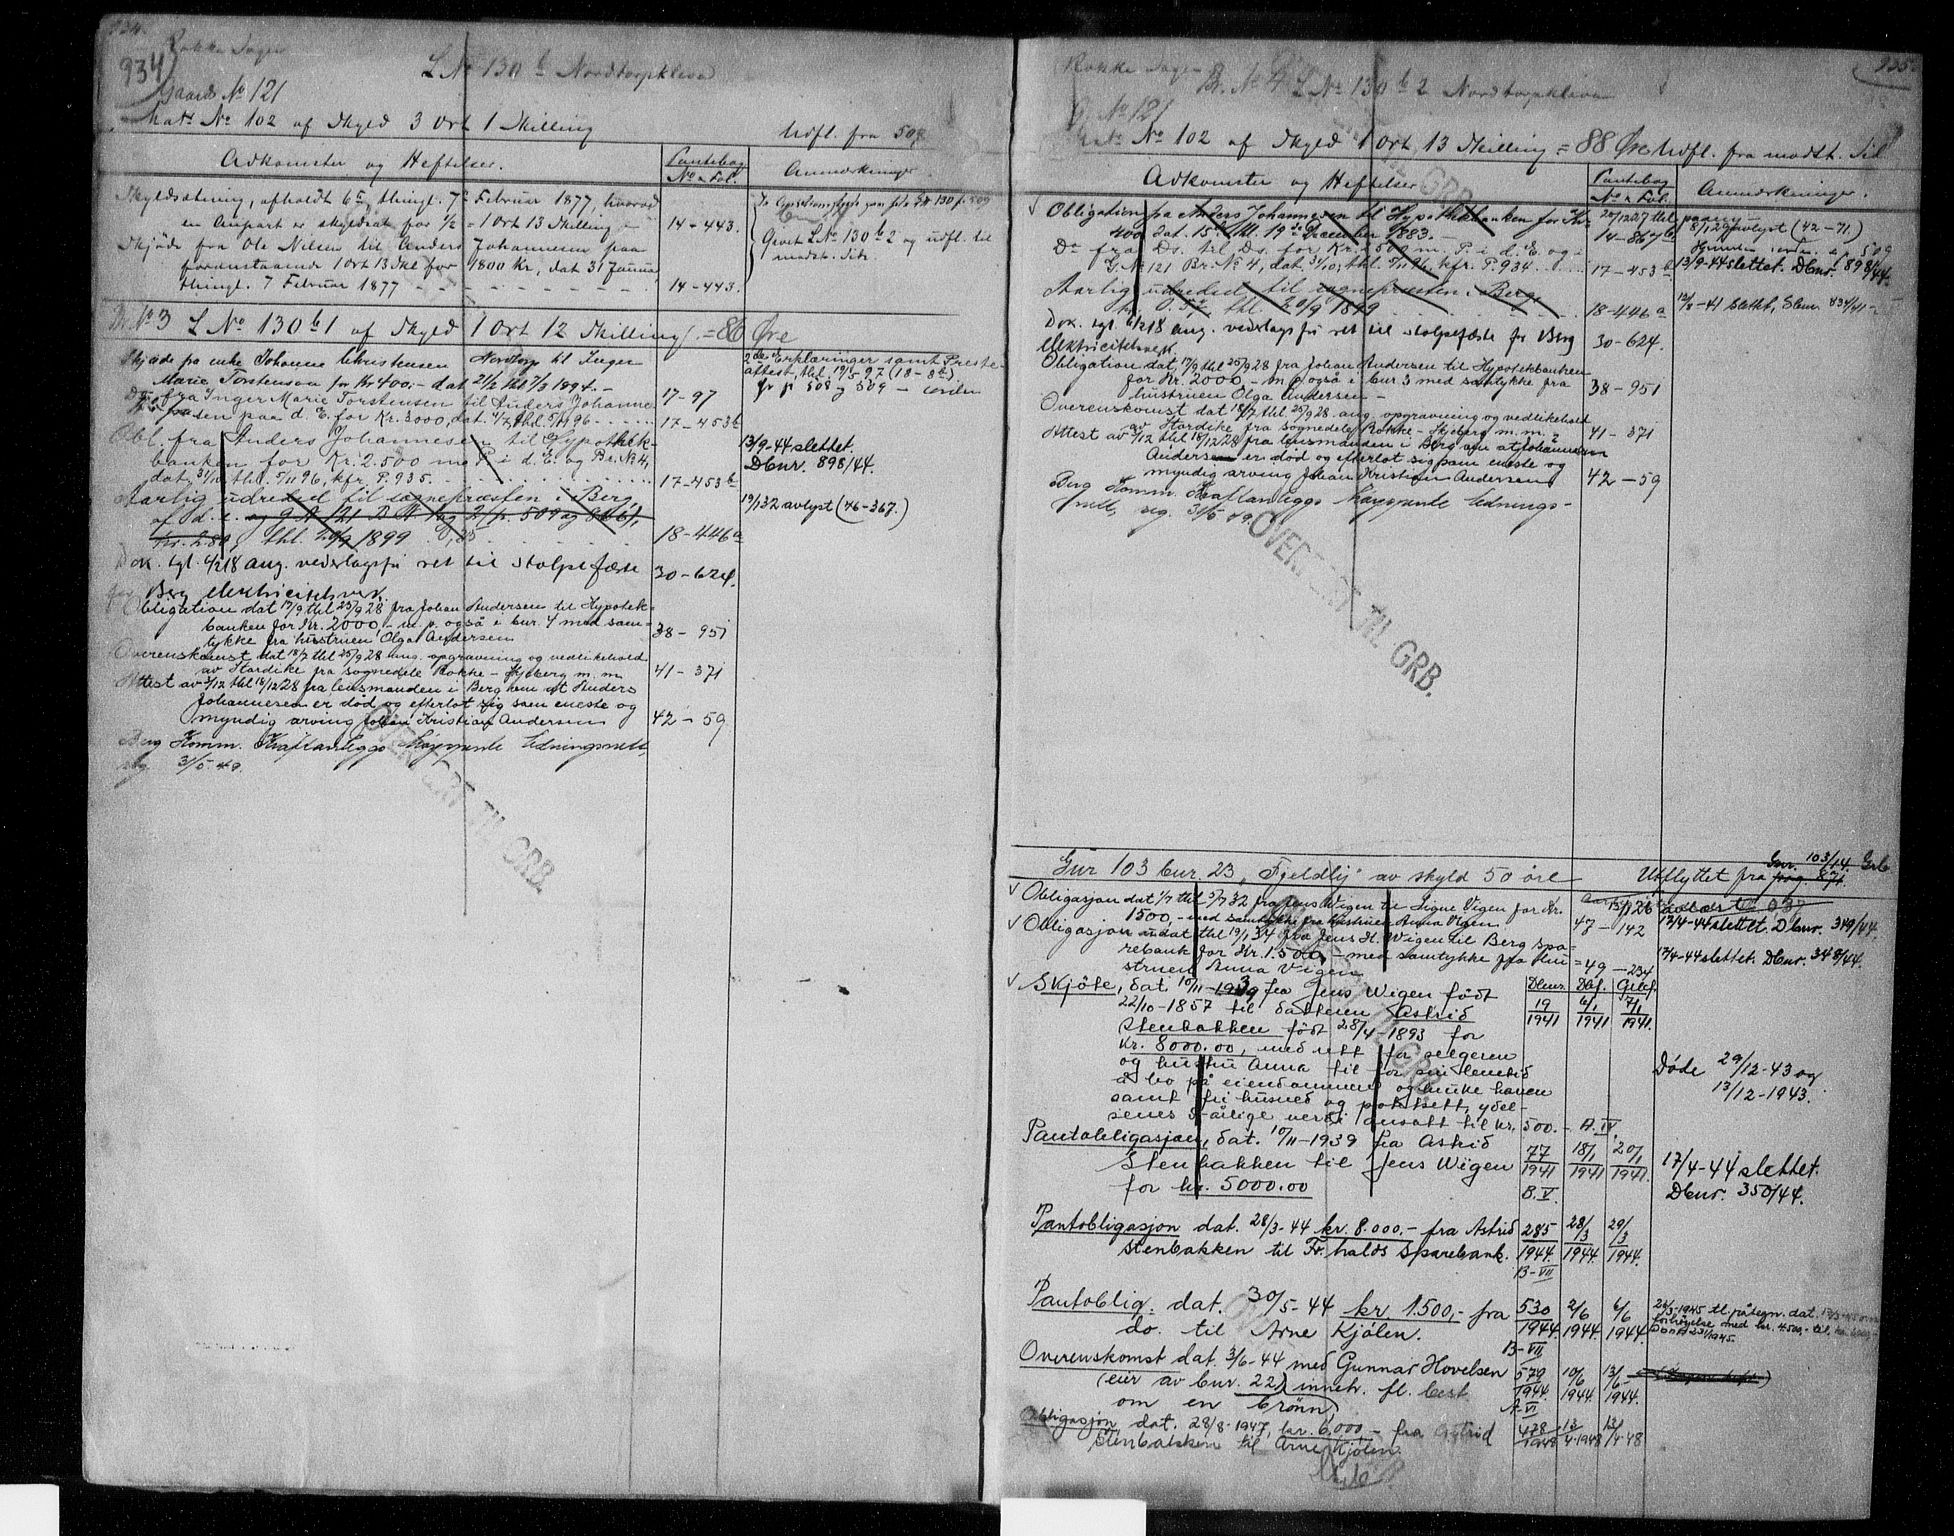 934
Rokke Sogn
L No 130 b Nordtorpkleva
Gaards No 121
Mats No 102 af Skyld 3 Ort 1 Skilling Udfl. fra 509
Adkomster og Heftelser. Pantebog No & Fol. Anmærkninger
Skyldsætning, afholdt 6te thingl. 7de Februar 1877, hvorved
en Anpart er skyldsat for 1/2 = 1 Ort 13 Skilling 14-443.
Skjøde fra Ole Nilsen til Anders Johannesen paa
foranstaaende 1 Ort 13 Skl for 1800 Kr, dat 31 Januar
thingl. 7 Februar 1877 14-443.
Givet L No 130 b 2 og udfl. til
modst. Side
Br. No 3 L No 130 b 1 af Skyld 1 Ort 12 Skilling = 86 Øre
Skjøde fra enke Johanne Christensen Nordtorp til Inger
Marie Torstensen for Kr 400,- dat 21/2 thl 1/3 1894. 17-97
Do fra Inger Marie Torstensen til Anders Johanne-
sen paa d. E. for Kr. 3000, dat. 4/7, thl. 5/11 96 17-453b
2de Erklæringer samt Preste-
attest, thl. 19/5 97 (18-8b)
fr. p 508 og 509
Obl. fra Anders Johannesen til Hypothek-
banken for Kr. 2.500 m. P. i d. E. og Br. No 4,
dat. 31/10, thl. 5/11 96, kfr. P. 935. 17-453b
13/9-44 slettet.
Dbnr. 898/44.
Aarlig udredsel til sognepræsten i Berg
af d. e. og G. No 121 B. No 1 og 2 (p. 509 og 866),
kr. 2.80, thl. 20/9 1899 18-446a
19/1 32 avlyst (46-367.)
Dok. tgl. 6/2 18 ang. vederlagsfri ret til stolpefæste
for Berg elektricitetsverk. 30-624.
Obligation dat 17/9 thl 25/9 28 fra Johan Andersen til Hypotek-
banken for Kr. 2000,- m. p. også i bnr. 4 med sam-
tykke fra hustruen Olga Andersen 38-951
Overenskomst dat 18/7 thl 25/9 28 ang. opgravning og vedlikehold
av Hordike fra sognedele Rokke - Skjeberg m. m. 41-371
Attest av 3/12 thl 18/12 28 fra lensmanden i Berg om at Anders
Johannesen er død og efterlot sig som eneste og
myndig arving Johan Kristian Andersen 42-59
Berg Komm. Kraftanleggs høyspente ledningsnett
reg. 3/5-49.
OVERFØRT TIL GRB.
935
Rokke Sogn Br. No 4 L No 130 b 2 Nordtorpkleva
G. No 121
Mats No 102 af Skyld 1 Ort 13 Skilling = 88 Øre Udfl. fra modst. Side
Adkomster og Heftelser Pantebog No & Fol. Anmærkninger.
Obligation fra Anders Johannesen til Hypothekbanken for Kr.
400 dat. 15de thl. 19de December 1883. 14-867b
8/1 29 avlyst (42-71)
Do fra Ds. til Ds. for Kr. 2500 m. P. i d. E. og i
G. No 121 Br. No 4, dat. 31/10, thl. 5/11 96, kfr. P. 934. 17-453b
13/9-44 slettet. Dbnr. 898/44.
Aarlig udredsel til sognepræsten i Berg,
kr. 0.57, thl. 20/9 1899 18-446a
12/8-41 slettet, Dbnr. 434/41
Dok. tgl. 6/2 18 ang. vederlagsfri ret til stolpefæste for Berg
elektricitetsverk. 30-624.
Obligation dat. 17/9 thl 25/9 28 fra Johan Andersen til Hypotekbanken
for Kr. 2000,- m p også i bnr 3 med samtykke fra
hustruen Olga Andersen - 38-951
Overenskomst dat 18/7 thl 25/9 28 ang. opgravning og vedlikehold
av Hordike fra sognedele Rokke - Skjeberg m. m. 41-371
Attest av 3/12 thl 18/12 28 fra lensmanden i Berg om at Johannesen
Andersen er død og efterlot sig som eneste og
myndig arving Johan Kristian Andersen 42-59
Berg Komm. Kraftanleggs høyspente lednings-
nett, reg. 3/5 49.
OVERFØRT TIL GRB.
Gnr 103 bnr. 23, "Fjeldly" av skyld 50 øre Utflyttet fra pag. 871. Gnr. 103/14. Grb
Obligasjon dat 1/7 thl 5/7 32 fra Jens Wigen til Signe Vigen for Kr.
1500,- med samtykke fra hustruen Anna Vigen. 47-142
17/4-44 slettet. Dbnr. 349/44.
Obligasjon udat thl 19/1 34 fra Jens H. Wigen til Berg spa-
rebank for Kr. 1.500,- med samtykke fra hu-
struen Anna Vigen 49-234
17/4-44 slettet. Dbnr. 348/44.
Skjöte, dat 10/11-1939 fra Jens Wigen födt Dbnr. Dbf. Grbf.
22/10-1857 til datteren Astrid 19/1941 6/1 1941 7/1 1941.
Stenbakken födt 28/4 1893 for
kr. 8000.00, med rett for selgeren
og hustru Anna til for sin levetid
å bo på eiendommen og bruke haven
samt fri husved og potetsett, ydel-
senes 5-årlige verdi ansatt til kr. 500.- A. IV.
Døde 29/12-43 og
13/12-1943.
Pantobligasjon, dat. 10/11-1939 fra Astrid
Stenbakken til Jens Wigen 77/1941 18/1 1941 20/1 1941.
for kr. 5000.00 B. V.
17/4-44 slettet.
Dbnr. 350/44.
Pantobligasjon dat. 28/3-44 kr. 8.000.- fra Astrid 285 28/3 29/3
Stenbakken til Fr.halds Sparebank. 1944. 1944. 1944.
B-VII
Pantoblig. dat. 30/5-44 kr. 1.500,- fra 530 2/6 6/6
do. til Arne Kjölen. 1944. 1944. 1944
B-VII
Overenskomst dat. 3/6-44 med Gunnar Hovelsen 579 10/6 13/6
(eier av bnr. 22) inneh. fl. best. 1944. 1944. 1944.
om en brönn A-VI
Obligasjon dat. 28/8-1947, kr. 6.000,- fra Astrid 478 13 13/
Stenbakken til Arne Kjölen. 1948 4-1948 4-48
OVERFØRT TIL GRB.